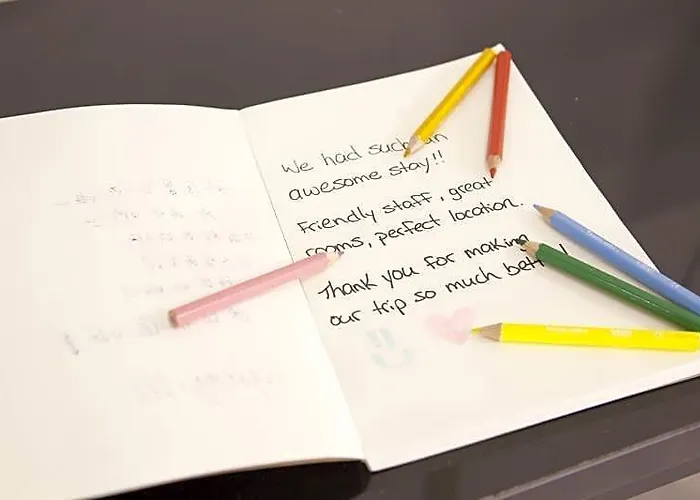 We had such an
awesome stay!!
Friendly staff, great
rooms, perfect location.
Thank you for making
our trip so much better!